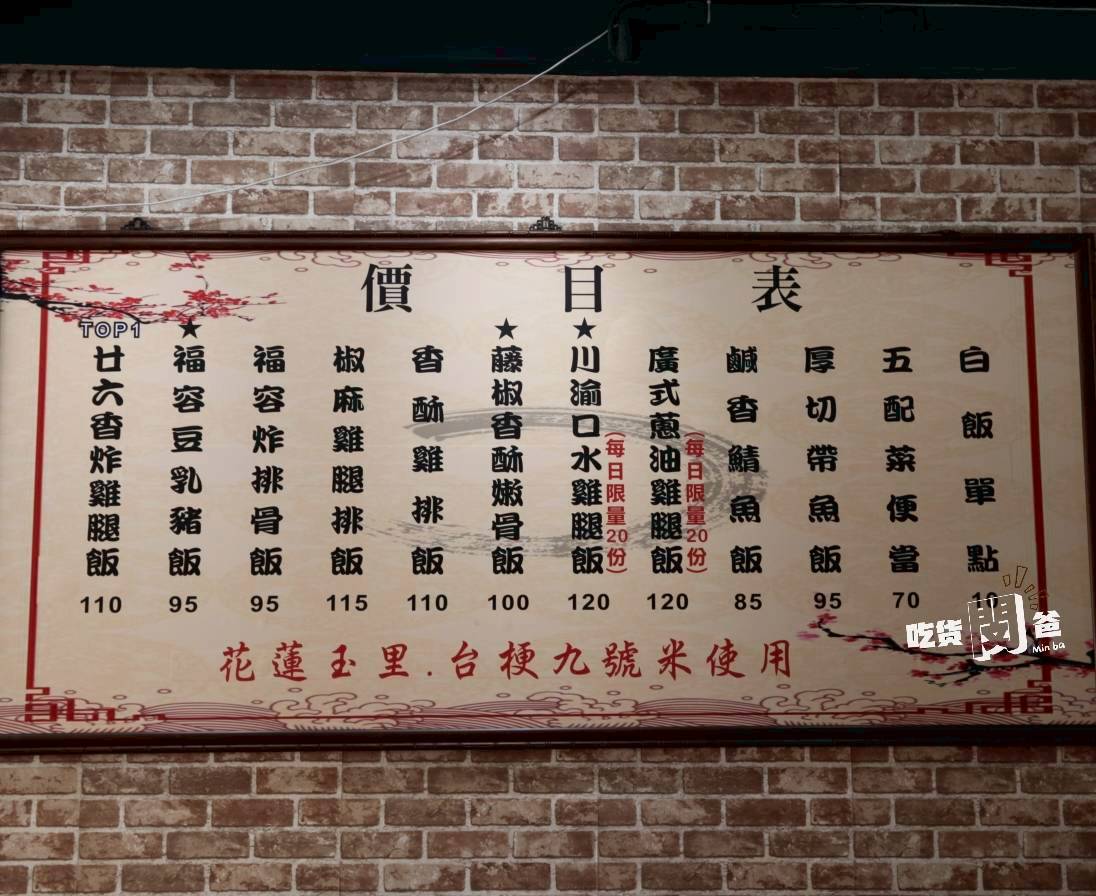 價目表
TOP1
廿六香炸雞腿飯
110
★
福容豆乳豬飯
95
福容炸排骨飯
95
椒麻雞腿排飯
115
香酥雞排飯
110
★
藤椒香酥嫩骨飯
100
★
川渝口水雞腿飯
(每日限量20份)
120
廣式蔥油雞腿飯
(每日限量20份)
120
鹹香鯖魚飯
85
厚切帶魚飯
95
五配菜便當
70
白飯單點
10
花蓮玉里.台梗九號米使用
吃货閔爸
Min ba